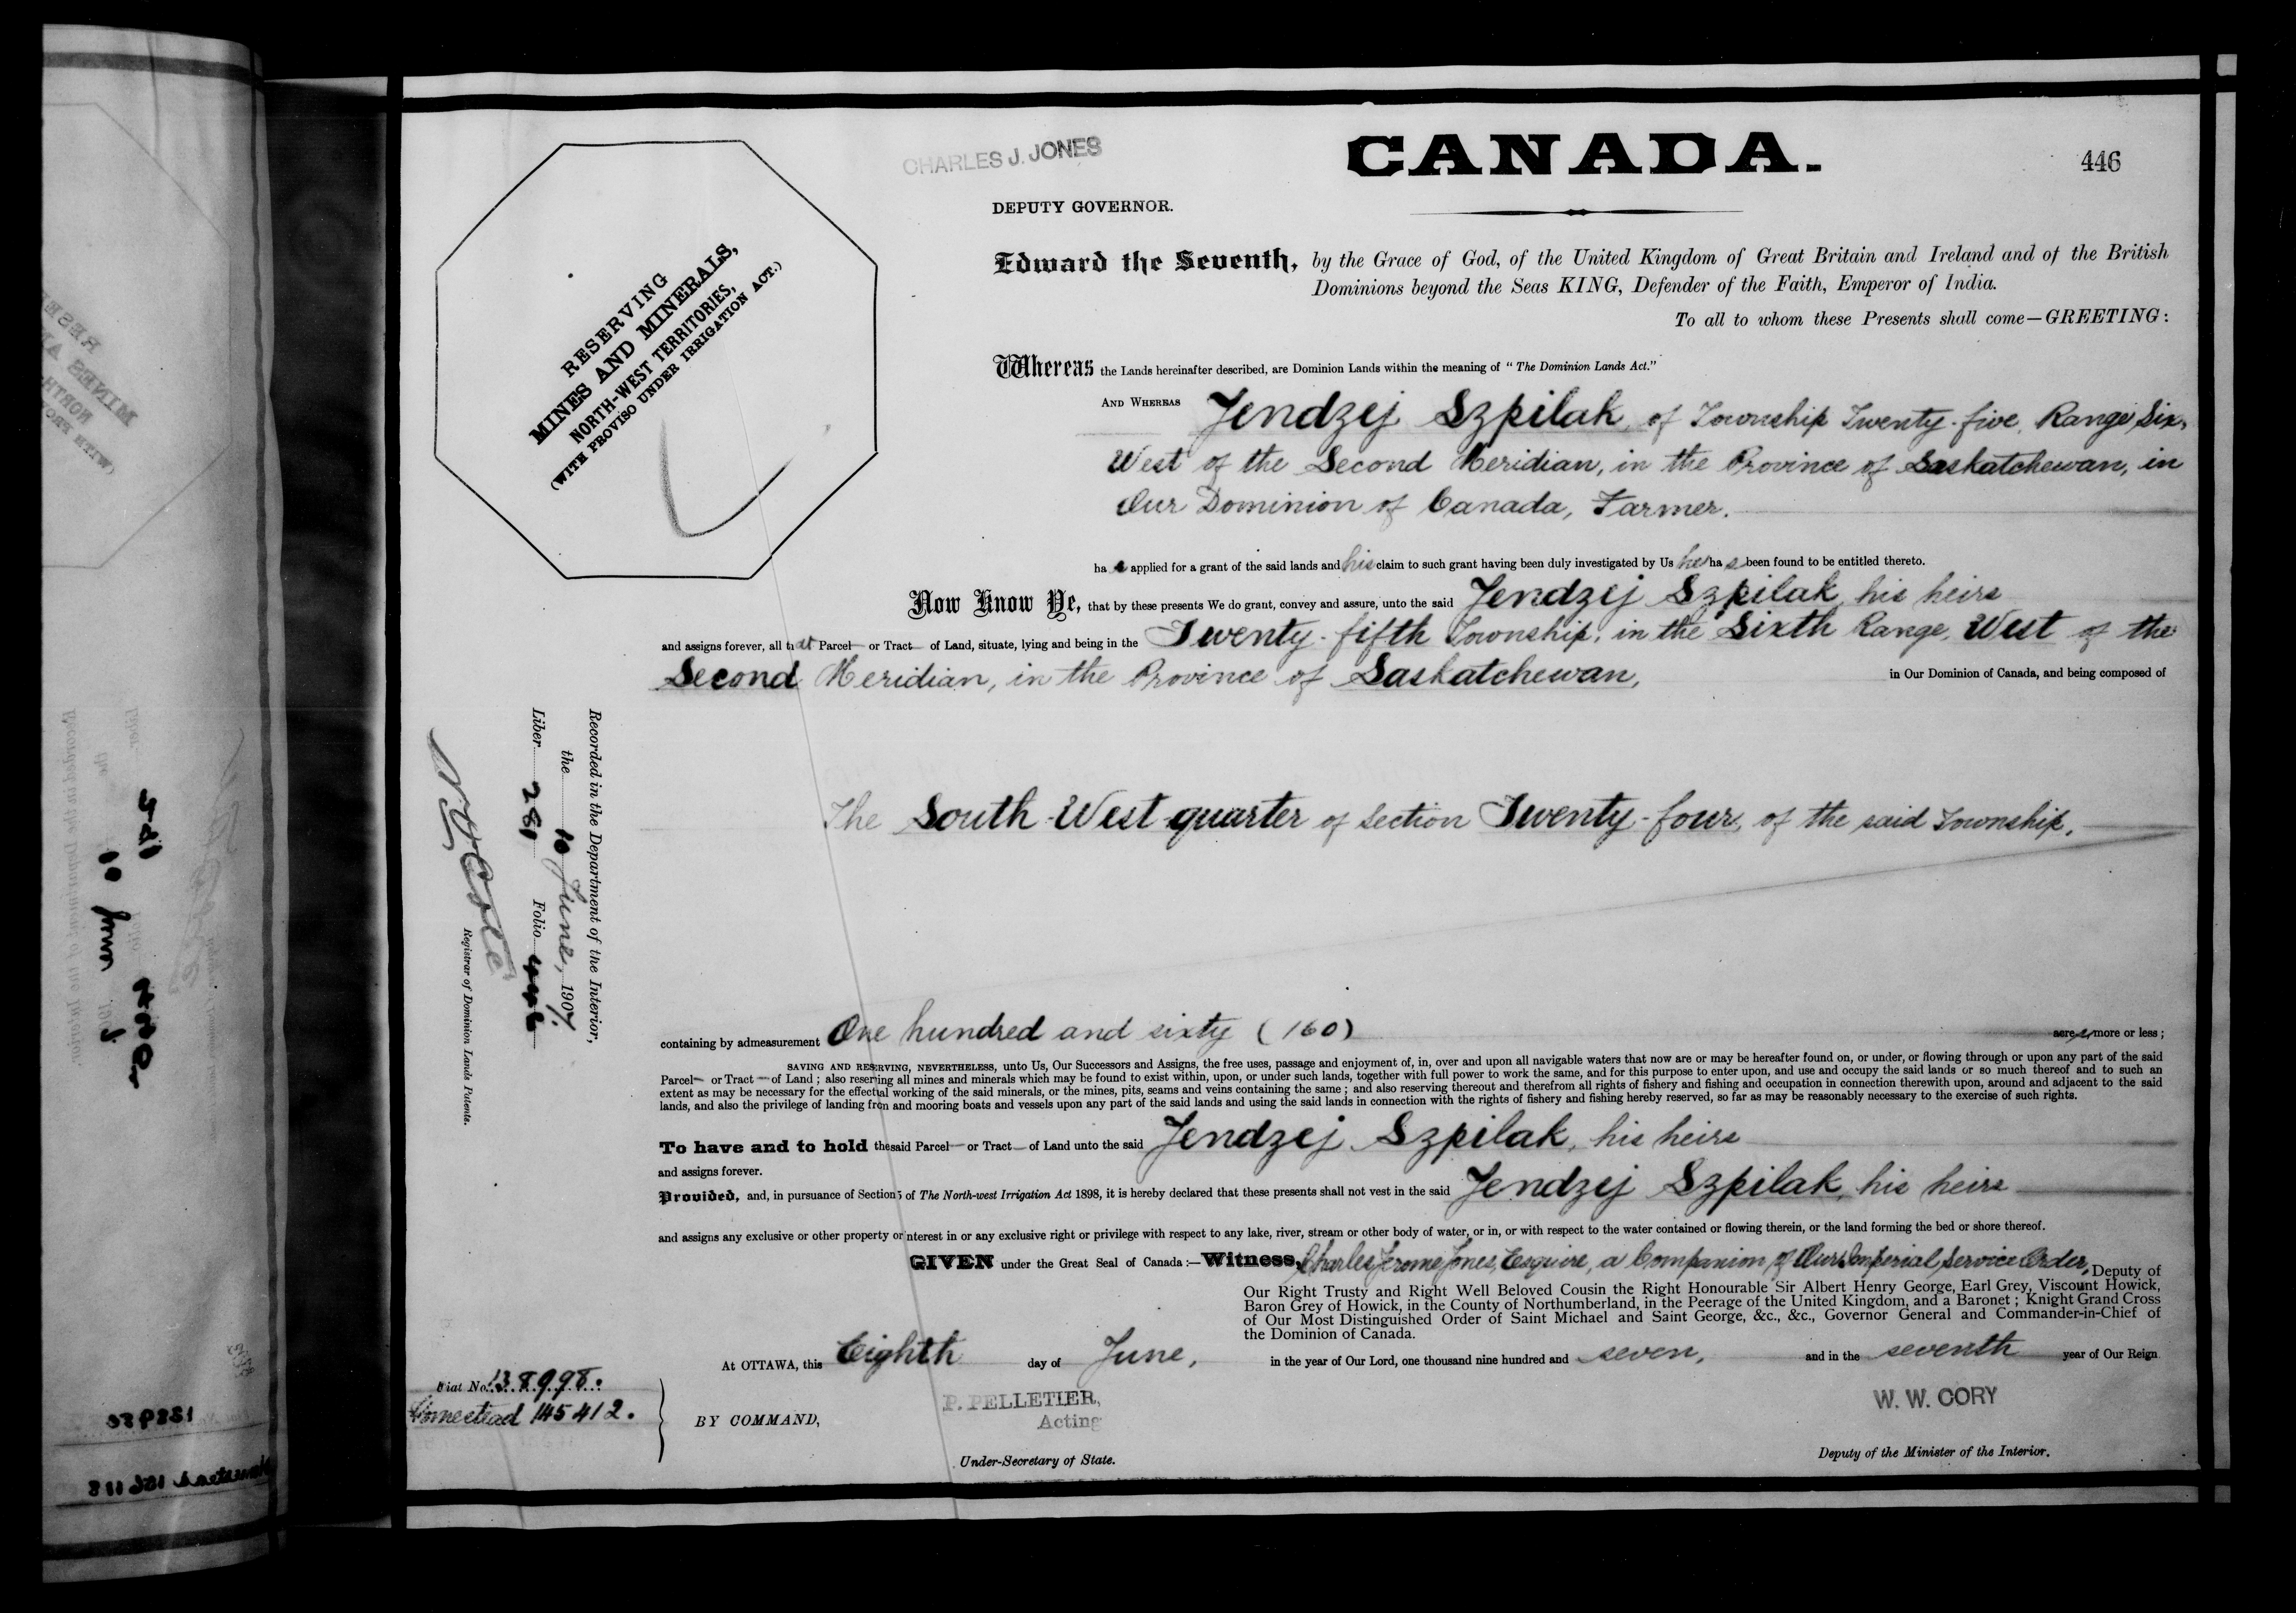 CHARLES J. JONES
CANADA.
446
DEPUTY GOVERNOR.
RESERVING
MINES AND MINERALS,
NORTH-WEST TERRITORIES,
(WITH PROVISO UNDER IRRIGATION ACT.)
Edward the Seventh, by the Grace of God, of the United Kingdom of Great Britain and Ireland and of the British
Dominions beyond the Seas KING, Defender of the Faith, Emperor of India.
To all to whom these Presents shall come—GREETING:
Whereas the Lands hereinafter described, are Dominion Lands within the meaning of "The Dominion Lands Act."
AND WHEREAS Jendzej Szpilak, of Township Twenty-five, Range Six,
West of the Second Meridian, in the Province of Saskatchewan, in
Our Dominion of Canada, Farmer.
has applied for a grant of the said lands and his claim to such grant having been duly investigated by Us he has been found to be entitled thereto.
Now Know Ye, that by these presents We do grant, convey and assure, unto the said Jendzej Szpilak, his heirs
and assigns forever, all that Parcel or Tract of Land, situate, lying and being in the Twenty-fifth Township, in the Sixth Range, West of the
Second Meridian, in the Province of Saskatchewan, in Our Dominion of Canada, and being composed of
The South-West quarter of section Twenty-four, of the said Township,
containing by admeasurement One hundred and sixty (160) acres more or less;
SAVING AND RESERVING, NEVERTHELESS, unto Us, Our Successors and Assigns, the free uses, passage and enjoyment of, in, over and upon all navigable waters that now are or may be hereafter found on, or under, or flowing through or upon any part of the said
Parcel or Tract of Land; also reserving all mines and minerals which may be found to exist within, upon, or under such lands, together with full power to work the same, and for this purpose to enter upon, and use and occupy the said lands or so much thereof and to such an
extent as may be necessary for the effectual working of the said minerals, or the mines, pits, seams and veins containing the same; and also reserving thereout and therefrom all rights of fishery and fishing and occupation in connection therewith upon, around and adjacent to the said
lands, and also the privilege of landing from and mooring boats and vessels upon any part of the said lands and using the said lands in connection with the rights of fishery and fishing hereby reserved, so far as may be reasonably necessary to the exercise of such rights.
To have and to hold the said Parcel or Tract of Land unto the said Jendzej Szpilak, his heirs
and assigns forever.
Provided, and, in pursuance of Section 5 of The North-west Irrigation Act 1898, it is hereby declared that these presents shall not vest in the said Jendzej Szpilak, his heirs
and assigns any exclusive or other property or interest in or any exclusive right or privilege with respect to any lake, river, stream or other body of water, or in, or with respect to the water contained or flowing therein, or the land forming the bed or shore thereof.
GIVEN under the Great Seal of Canada:—Witness, Charles Jerome Jones, Esquire, a Companion of Our Imperial Service Order, Deputy of
Our Right Trusty and Right Well Beloved Cousin the Right Honourable Sir Albert Henry George, Earl Grey, Viscount Howick,
Baron Grey of Howick, in the County of Northumberland, in the Peerage of the United Kingdom, and a Baronet; Knight Grand Cross
of Our Most Distinguished Order of Saint Michael and Saint George, &c., &c., Governor General and Commander-in-Chief of
the Dominion of Canada.
At OTTAWA, this Eighth day of June, in the year of Our Lord, one thousand nine hundred and seven, and in the seventh year of Our Reign
BY COMMAND,
P. PELLETIER,
Acting
Under-Secretary of State.
W. W. CORY
Deputy of the Minister of the Interior.
Fiat No. 138998.
Homestead 145412.
Recorded in the Department of the Interior,
the 10 June, 1907,
Liber 281 Folio 446
Registrar of Dominion Lands Patents.